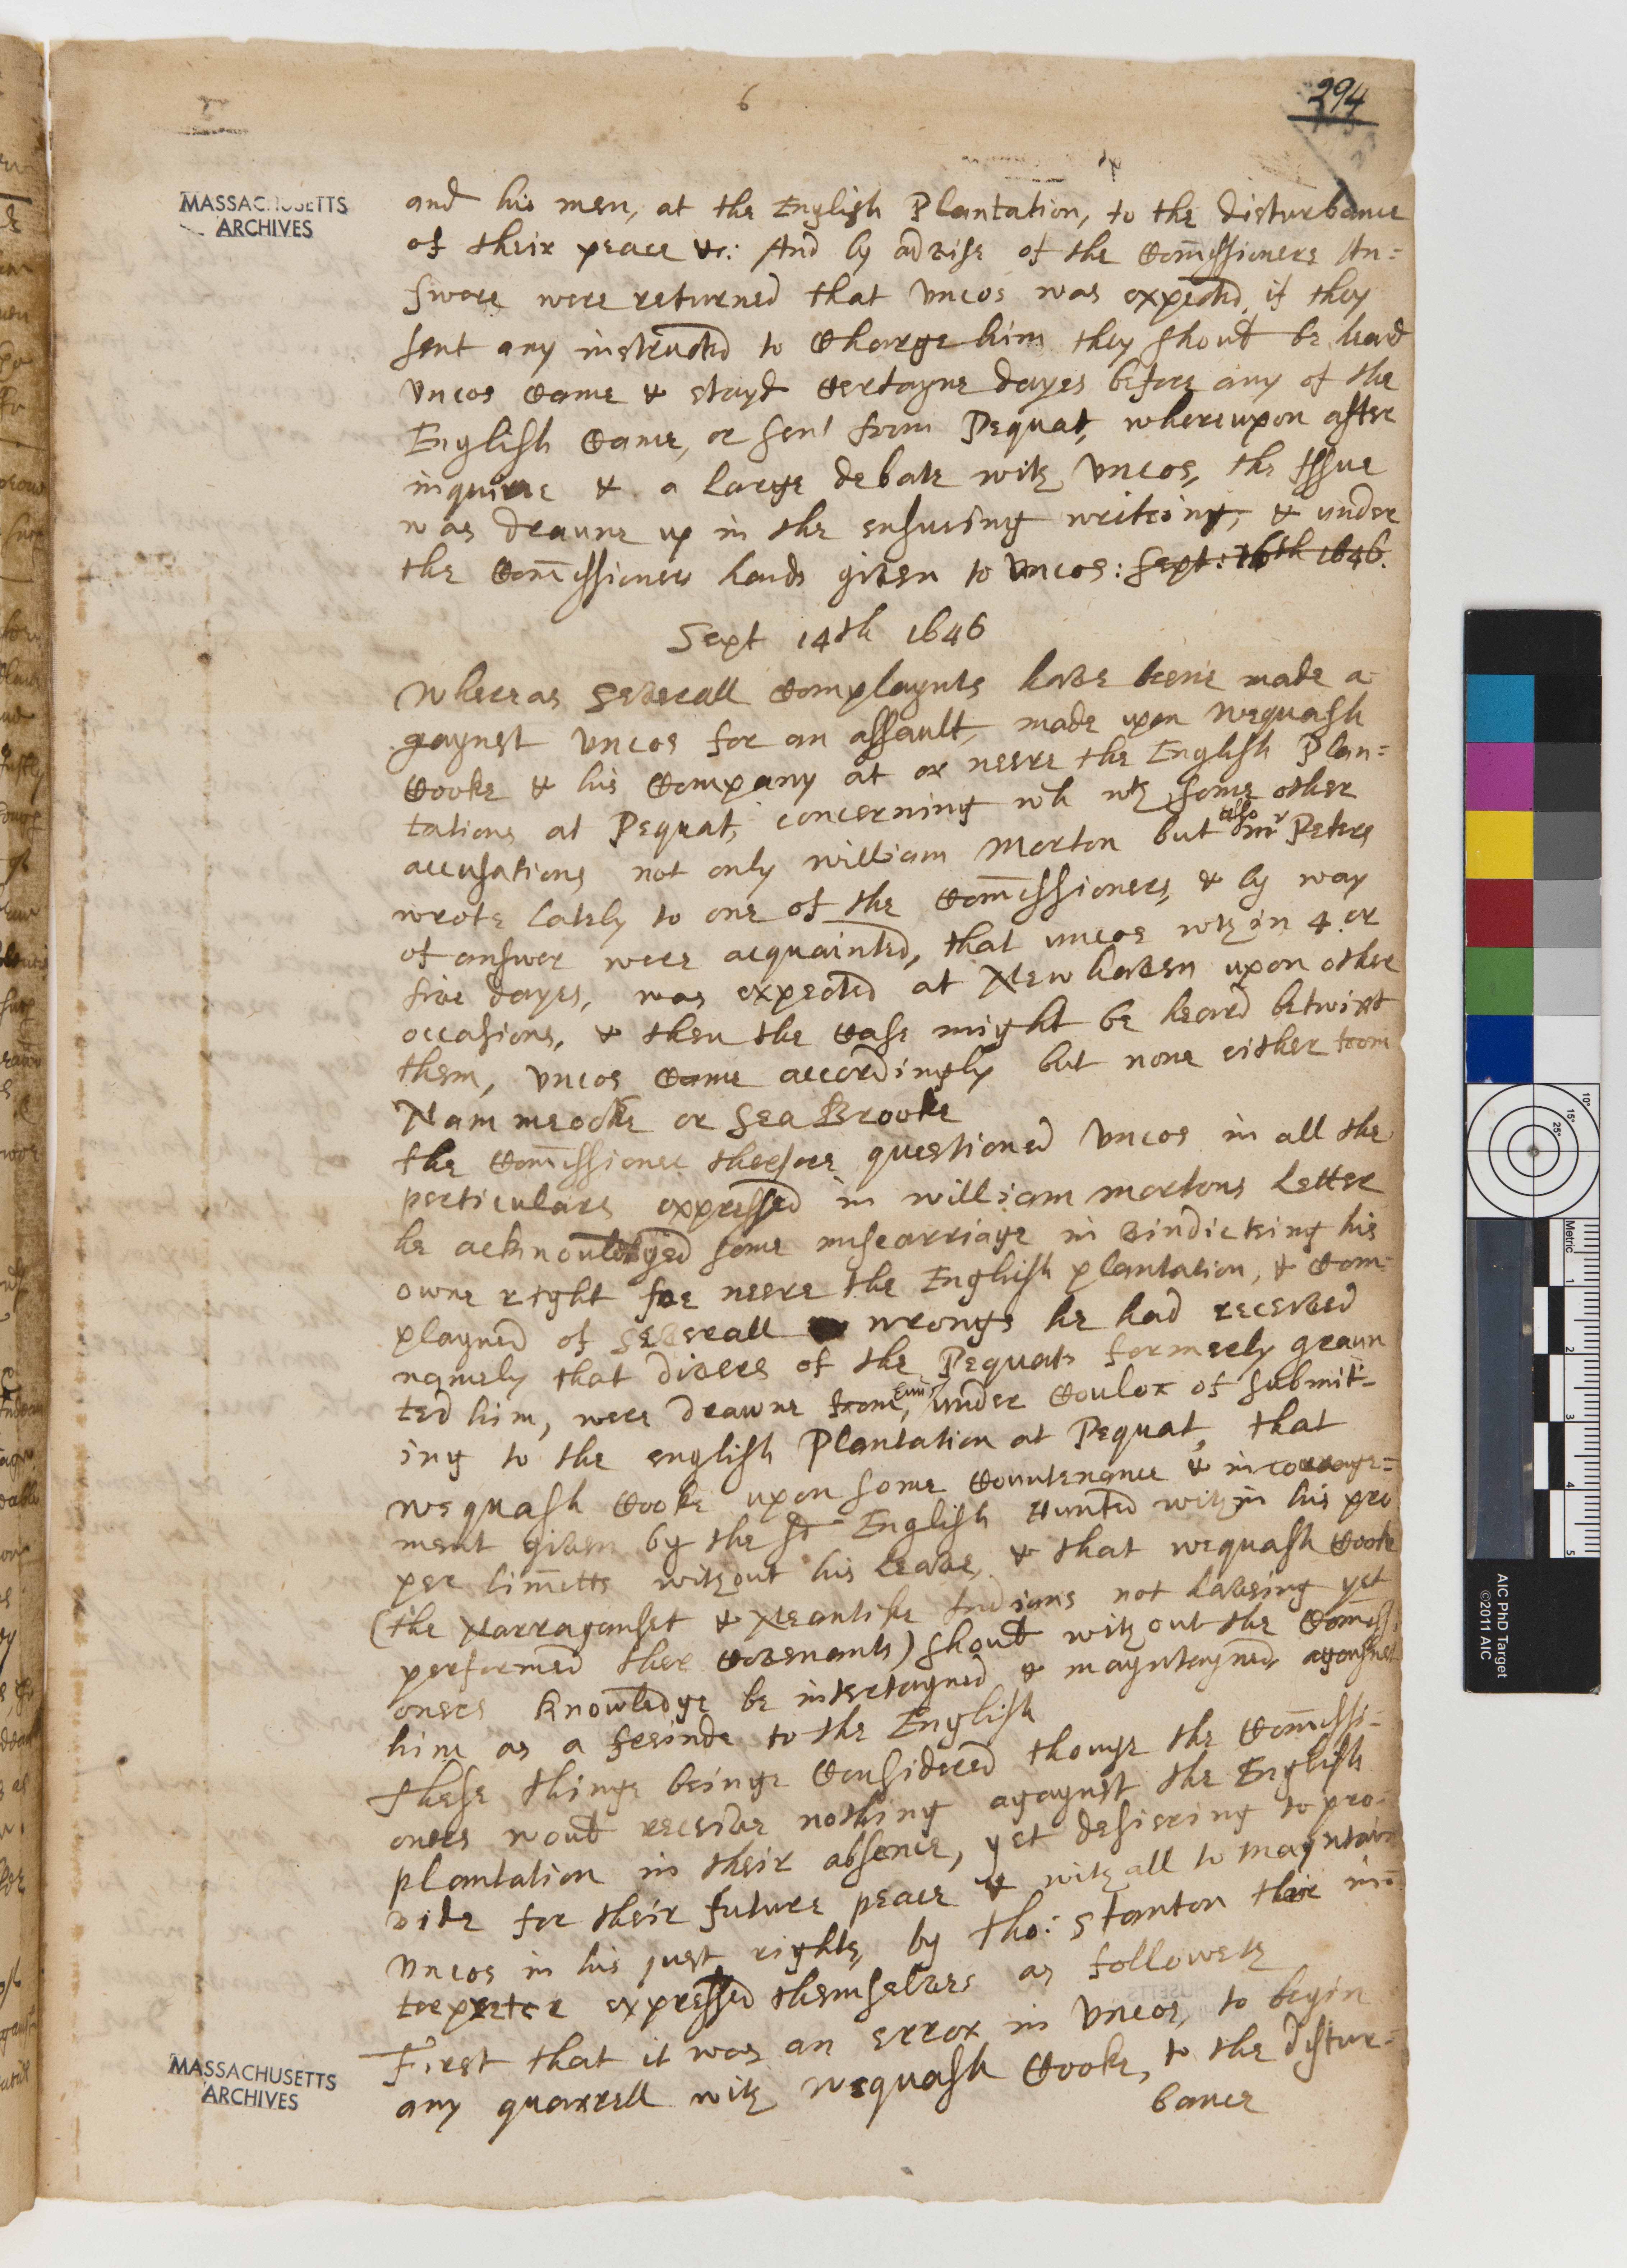 6
294
MASSACHUSETTS
ARCHIVES
and his men, at the English Plantation, to the disturbance
of their peace &c: And by advise of the Comissioners An=
swers were returned that Uncos was expected, if they
sent any instructed to Charge him they should be heard
Uncos Came & stayd Certayne dayes before any of the
English Came, or sent from Pequat, whereupon after
inquirie & a large debate with Uncos, the Issue
was drawne up in the ensueing writeing, & under
the Comissioners hands given to Uncos: Sept: 16th 1646.
Sept 14th 1646
Whereas severall Complaynts have beene made a
gaynst Uncos for an assault, made upon wequash
Cooke & his Company at or neere the English Plan=
tations at Pequat, concerning wh wth some other
accusations not only william Morton but also mr Peters
wrote lately to one of the Comissioners, & by way
of answer were acquainted, that uncos wthin 4 or
five dayes, was expected at New haven upon other
occasions, & then the Case might be heard betwixt
them, Uncos Came accordingly but none either from
Nammeocke or Sea Brooke
the Comissioners therfore questioned Uncos in all the
perticulars expressed in william mortons Letter
he acknowledged some miscarriage in vindicteing his
owne right soe neere the English plantation, & Com=
playned of severall wrongs he had received
namely that divers of the Pequats formerly graun
ted him, were drawne from him, under Coulor of submit=
ing to the english Plantation at Pequat, that
wequash Cooke upon some Countenance & incourage=
ment given by the sd English Hunted within his pro
per limetts without his leave, & that wequash Cooke
(the Narraganset & Neantike Indians not haveing yet
performed ther Covenants) should without the Comissi
oners knowledge be intertayned & mayntayned agaynst
him as a freinde to the English
these things beinge Considered though the Comissi=
oners would receive nothing agaynst the English
plantation in their absence, yet desiering to pro=
vide for their future peace & withall to mayntain
Uncos in his just rights, by Tho: Stanton their in=
terpreter expressed themselves as followeth
First that it was an error in Uncos, to begin
any quarrell with wequash Cooke, to the distur=
bance
MASSACHUSETTS
ARCHIVES
10°
15°
25°
Metric
1
2
3
4
5
AIC PhD Target
©2011 AIC